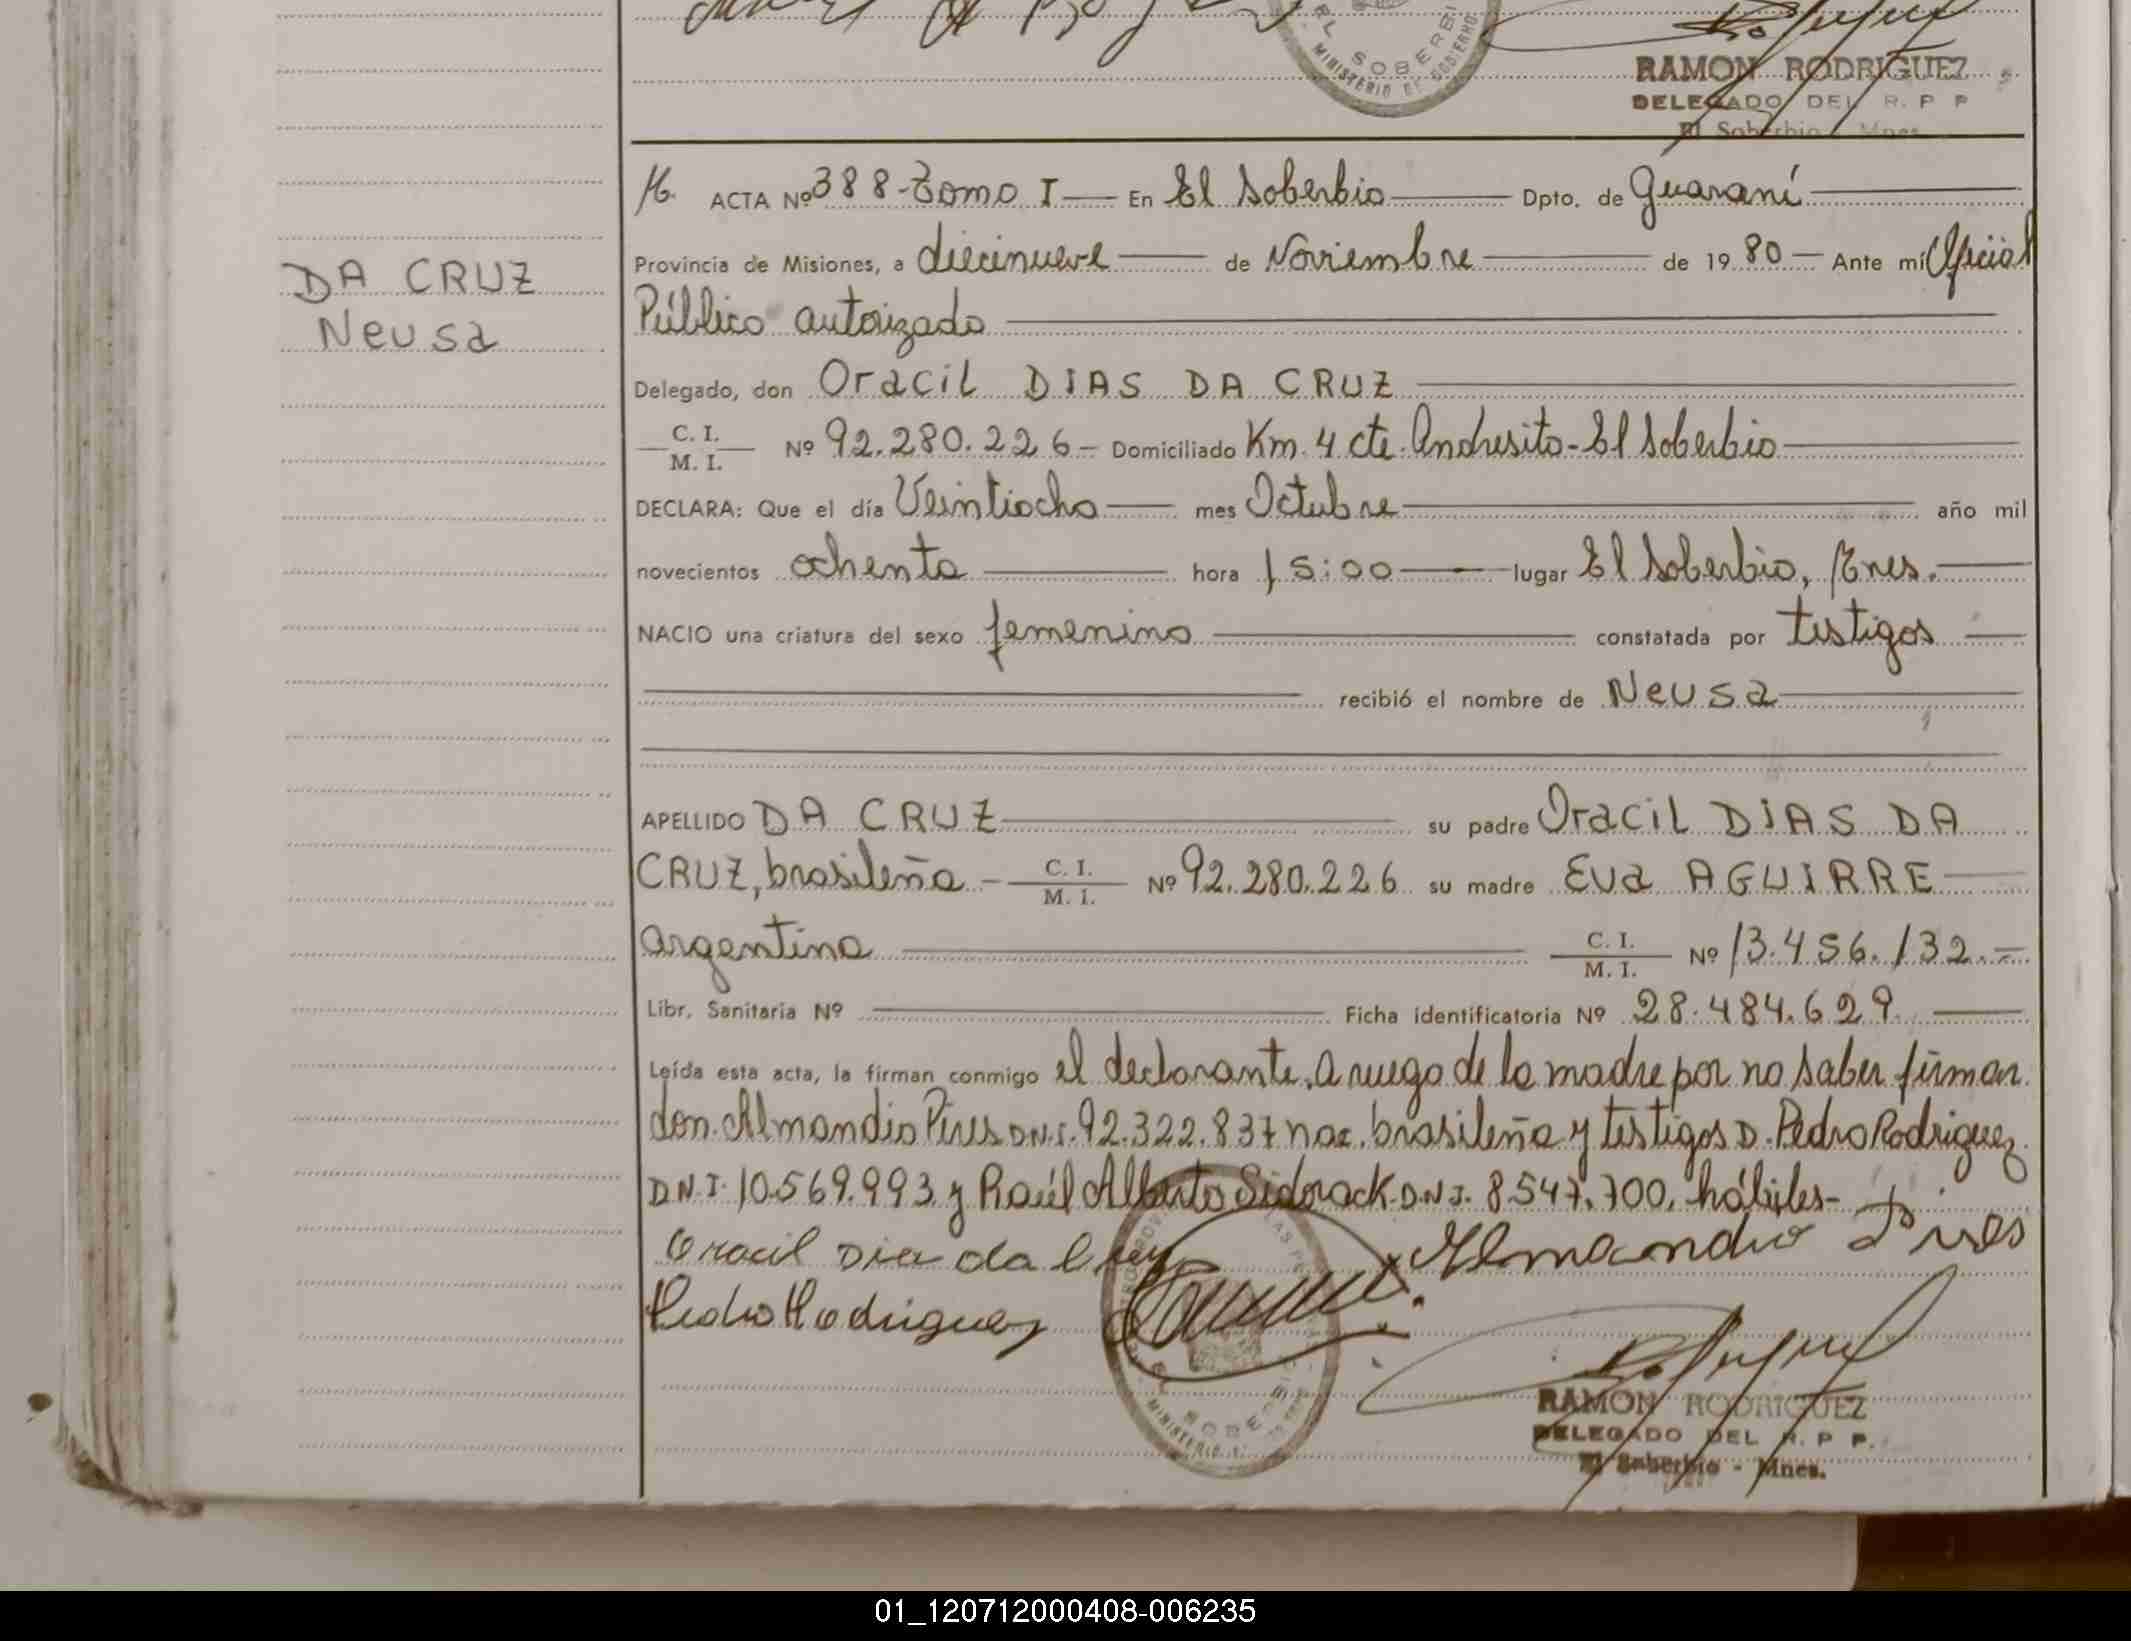 EL SOBERBIO
MINISTERIO DE GOBIERNO
RAMON RODRIGUEZ
DELEGADO DEL R. P P
El Soberbio - Mnes
ACTA Nº 388-Tomo I — En El Soberbio — Dpto. de Guaraní
Provincia de Misiones, a diecinueve — de Noviembre — de 19 80 — Ante mí Oficial
Público autorizado
DA CRUZ
Neusa
Delegado, don Oracil DIAS DA CRUZ
C. I.
M. I. Nº 92.280.226 - Domiciliado Km. 4 cte. Andresito - El Soberbio
DECLARA: Que el día Veintiocho — mes Octubre — año mil
novecientos ochenta — hora 15:00 — lugar El Soberbio, Mnes.
NACIO una criatura del sexo femenino — constatada por testigos
recibió el nombre de Neusa
APELLIDO DA CRUZ — su padre Oracil DIAS DA
CRUZ, brasileña - C. I. M. I. Nº 92.280.226 su madre Eva AGUIRRE
argentina — C. I. M. I. Nº 13.456.132.=
Libr. Sanitaria Nº — Ficha identificatoria Nº 28.484.629
Leída esta acta, la firman conmigo el declarante, a ruego de la madre por no saber firmar
don Almandio Pires D.N.I. 92.322.837 nac. brasileña y testigos D. Pedro Rodriguez
D.N.I. 10.569.993 y Raúl Alberto Sidorack D.N.I. 8.547.700, hábiles-
Oracil Dia da Cruz Almandio Pires
Pedro Rodriguez
RAMON RODRIGUEZ
DELEGADO DEL R. P P.
El Soberbio - Mnes.
01_120712000408-006235